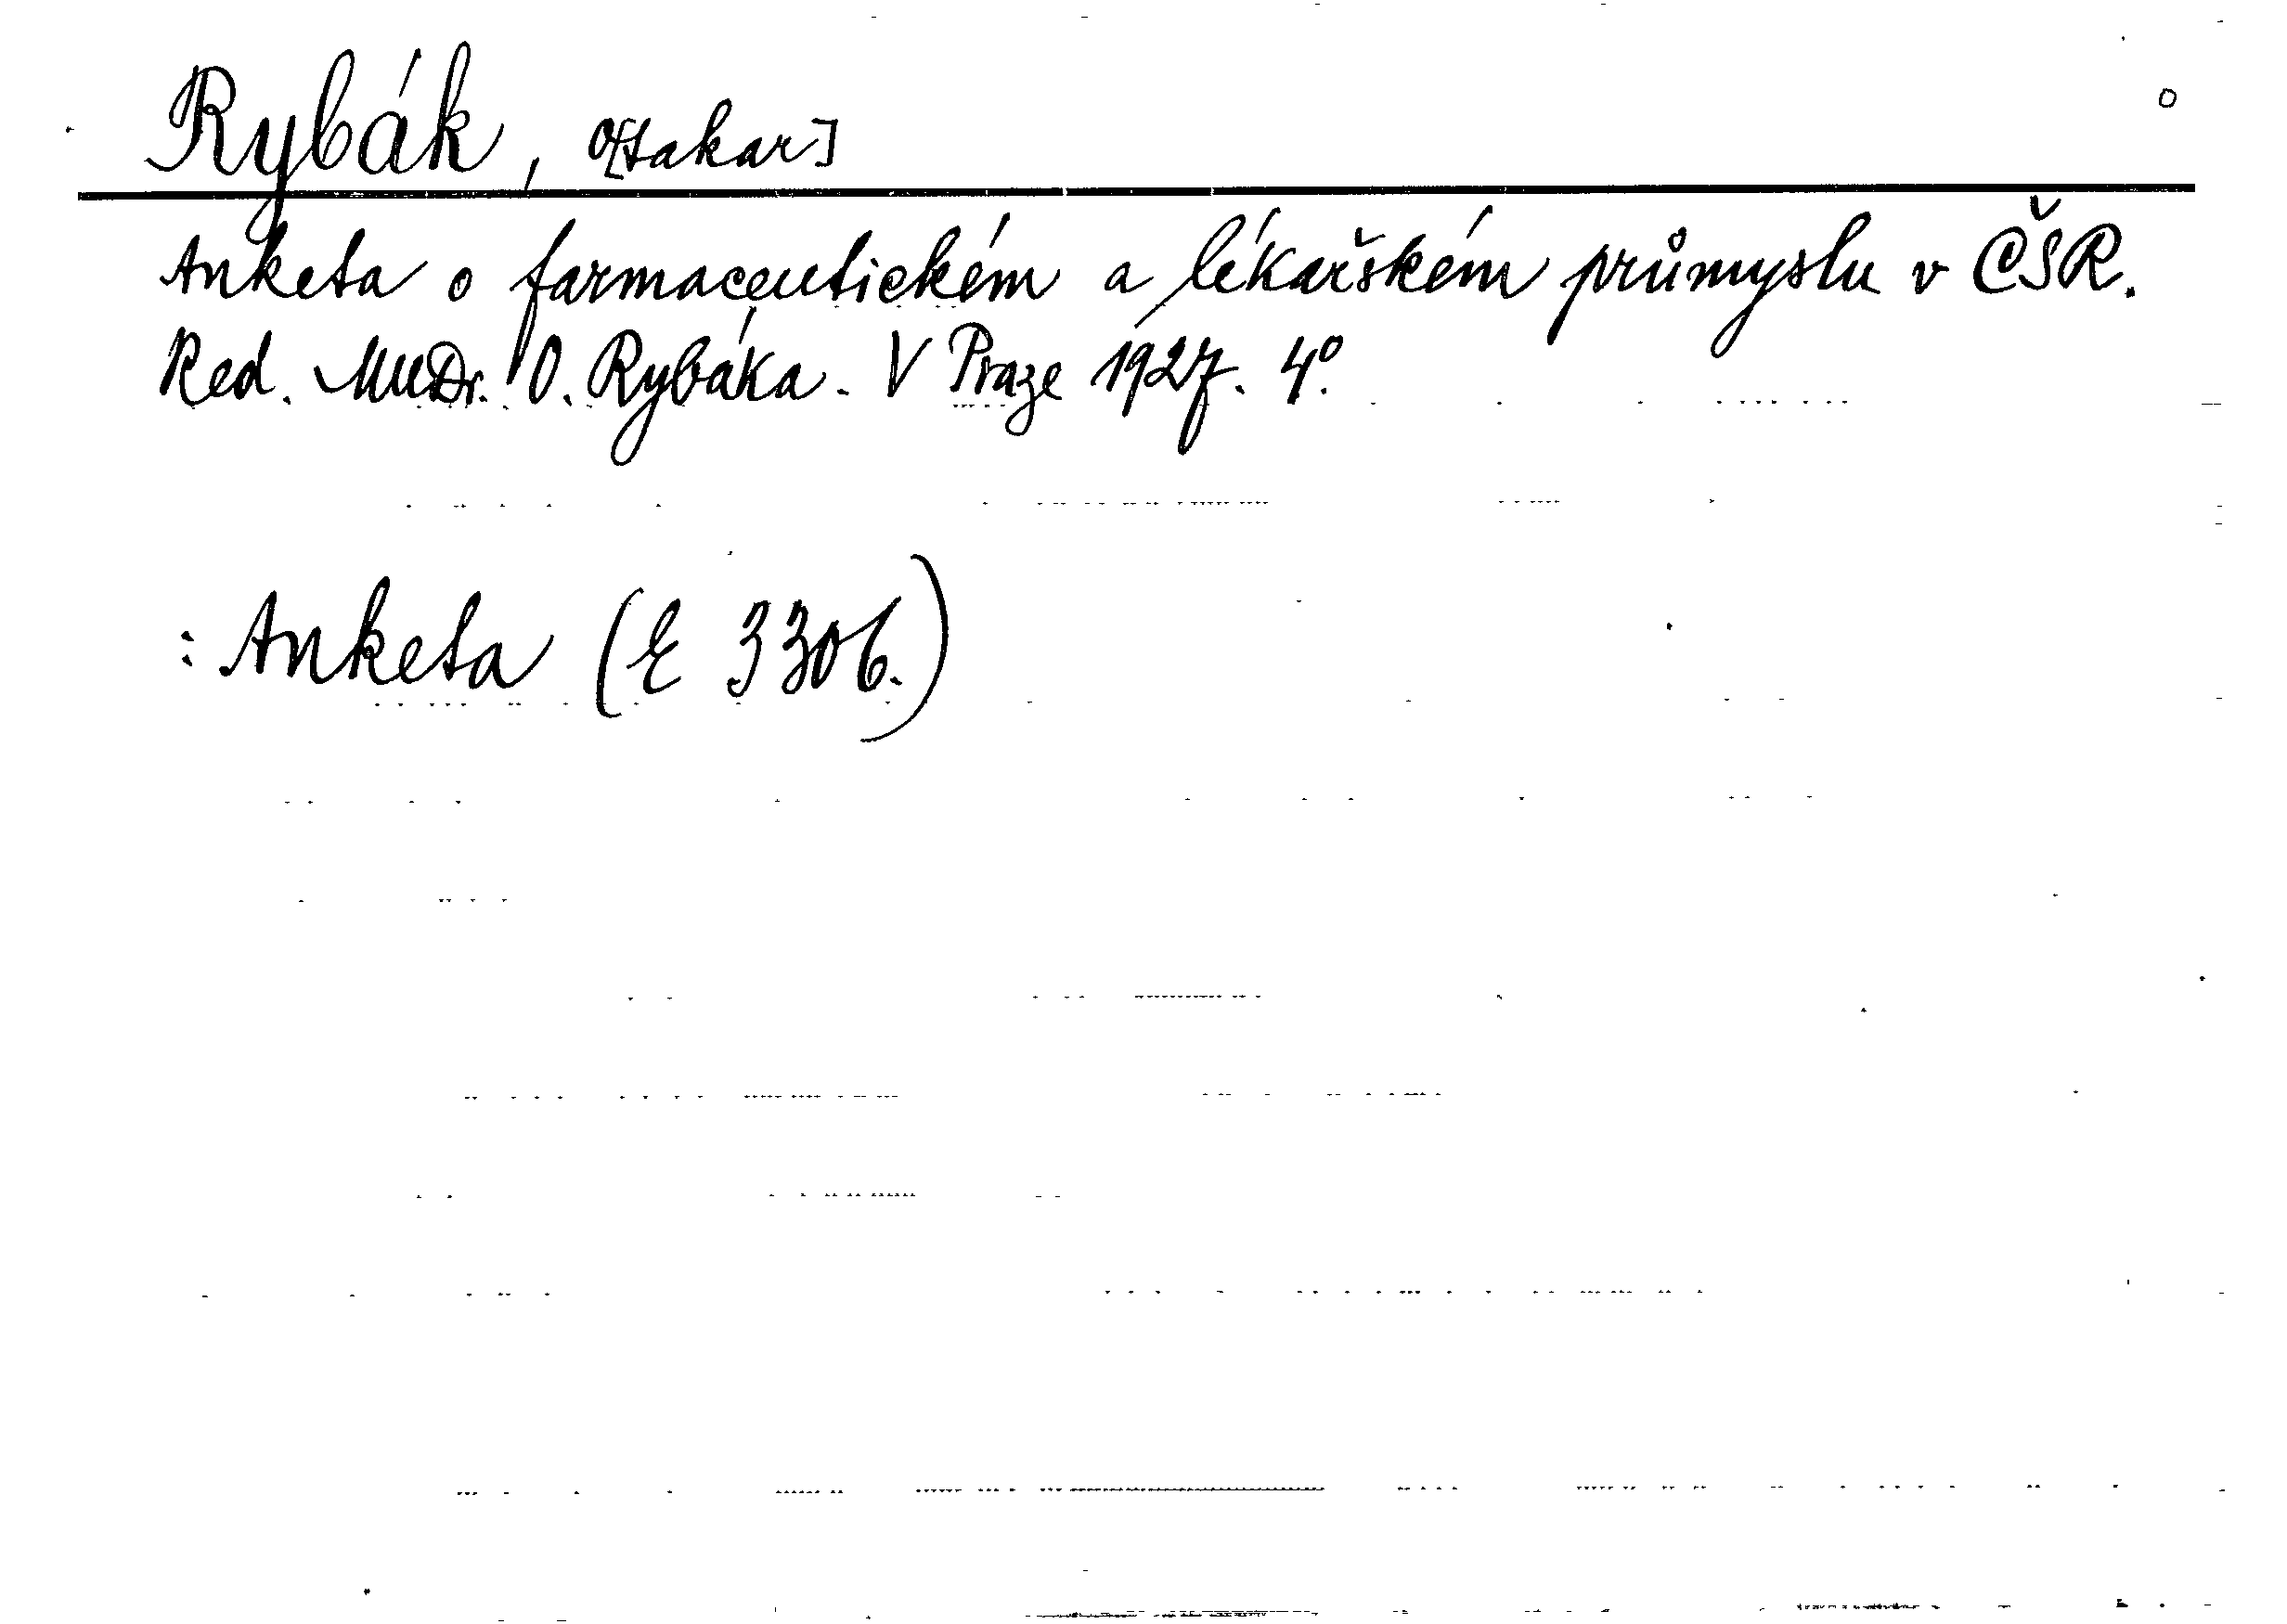 Rybák, O[takar]
Anketa o farmaceutickém a lékařském průmyslu v ČSR.
Red. MUDr. O. Rybáka. V Praze 1927. 4°.
: Anketa (E 3306.)